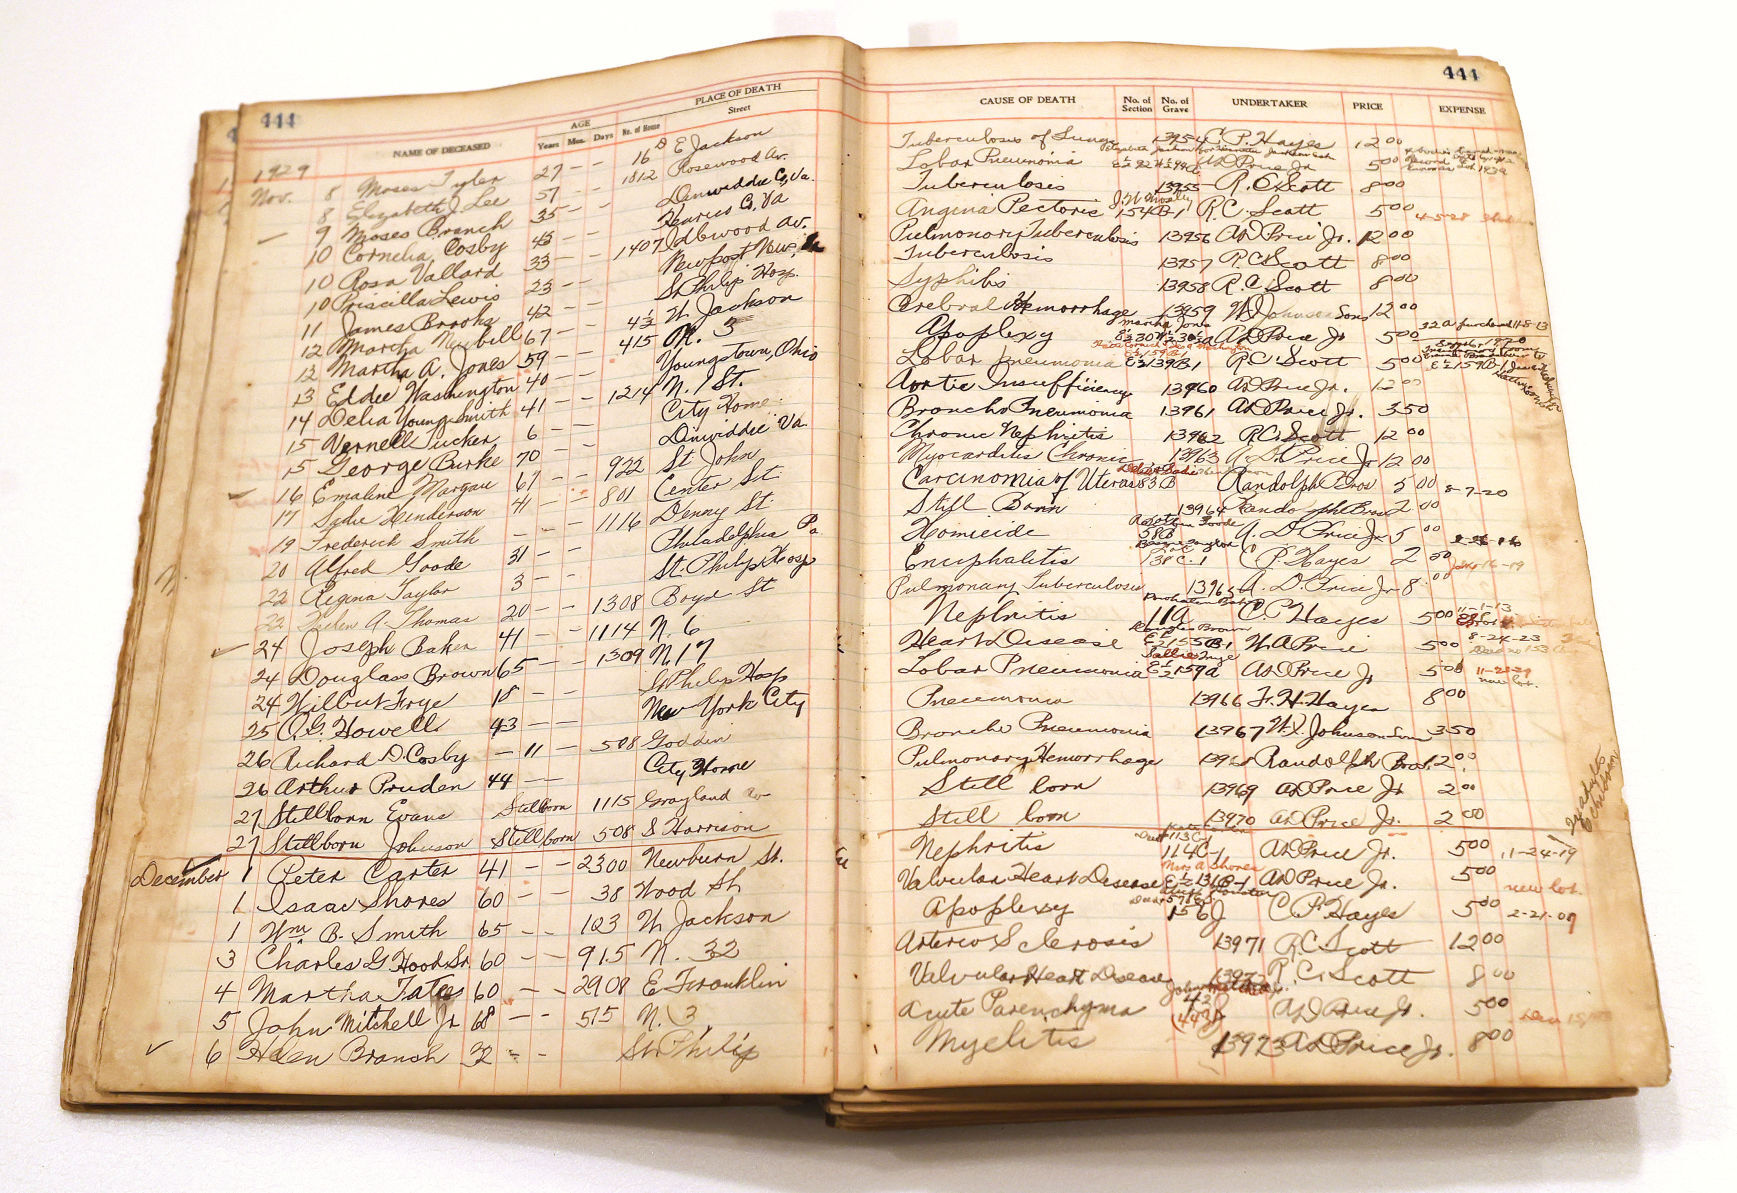 444
AGE
PLACE OF DEATH
NAME OF DECEASED Years Mos. Days No. of House Street
1929
Nov. 8 Moses Tyler 27 - - 16 E Jackson
8 Elizabeth J. Lee 57 - - 1812 Rosewood Av.
9 Moses Branch 35 - - Dinwiddie Co, Va.
10 Cornelia Cosby 45 - - Henrico Co, Va
10 Rosa Vallard 33 - - 1407 Idlewood Av.
10 Priscilla Lewis 23 - - Newport News,
11 James Brooks 42 - - St Philip Hosp.
12 Martha Newbell 67 - - 4 1/2 W Jackson
12 Martha A. Jones 59 - - 415 N. 3
13 Eddie Washington 40 - - Youngstown, Ohio
14 Delia Young Smith 41 - - 1214 N. 1 St.
15 Vernell Tucker 6 - - City Home
15 George Burke 70 - - Dinwiddie Va.
16 Emaline Morgan 67 - - 922 St John
17 Sadie Henderson 41 - - 801 Center St
19 Frederick Smith - - 1116 Denny St
20 Alfred Goode 31 - - Philadelphia Pa
22 Regina Taylor 3 - - St. Philip Hosp
22 A. Thomas 20 - - 1308 Boyd St
24 Joseph Baker 41 - - 1114 N. 6
24 Douglass Brown 65 - - 1309 N. 17
24 Wilbut Frye 18 - - St Philip Hosp
25 O.G. Howell 43 - - New York City
26 Richard D. Cosby - 11 - 508 Goddin
26 Arthur Pruden 44 - - City Home
27 Stillborn Evans Stillborn 1115 Grayland Av
27 Stillborn Johnson Stillborn 508 S Harrison
December 1 Peter Carter 41 - - 2300 Newburn St.
1 Isaac Shores 60 - - 38 Wood St
1 Wm B. Smith 65 - - 123 W Jackson
3 Charles G Hood Sr 60 - - 915 N. 32
4 Martha Tates 60 - - 2908 E Franklin
5 John Mitchell Jr 68 - - 515 N. 3
6 Helen Branch 32 - - St. Philip
444
CAUSE OF DEATH No. of Section No. of Grave UNDERTAKER PRICE EXPENSE
Tuberculosis of Lungs 13954 C.P. Hayes 12 00
Lobar Pneumonia A.D. Price Jr. 5 00
Tuberculosis 13955 R.C. Scott 8 00
Angina Pectoris 154 B-1 R.C. Scott 5 00 4-5-28
Pulmonary Tuberculosis 13956 A.D. Price Jr. 12 00
Tuberculosis 13957 R.C. Scott 8 00
Syphilis 13958 R.C. Scott 8 00
Cerebral Hemorrhage 13959 W.I. Johnson Sons 12 00
Martha Jones
Apoplexy A.D. Price Jr 5 00 32 A purchased 11-8-13
Lobar Pneumonia E 1/2 139 B-1 R.C. Scott 5 00
Aortic Insufficiency 13960 A.D. Price Jr. 12 00
Broncho Pneumonia 13961 A.D. Price Jr. 3 50
Chronic Nephritis 13962 R.C. Scott 12 00
Myocarditis Chronic 13963 A.D. Price Jr 12 00
Carcinoma of Uterus 83 B Randolph Bros 5 00 8-7-20
Still Born 13964 Randolph Bros 2 00
Homicide 58 B A.D. Price Jr 5 00 2-26-16
Encephalitis 138 C-1 C.P. Hayes 2 50
Pulmonary Tuberculosis 13965 A.D. Price Jr 8 00
Nephritis 11 A C.P. Hayes 5 00 11-1-13
Douglas Brown
Heart Disease E 1/2 155 B-1 W.A. Price 5 00 8-24-23
Lobar Pneumonia E 1/2 159 A A.D. Price Jr 5 00 11-23-29 new lot.
Pneumonia 13966 F.H. Hayes 8 00
Broncho Pneumonia 13967 W.I. Johnson Sons 3 50
Pulmonary Hemorrhage 1396 Randolph Bros. 12 00
Still born 13969 A.D. Price Jr 2 00
Still born 13970 A.D. Price Jr. 2 00
Nephritis 114 C-1 A.D. Price Jr. 5 00 11-24-19
Mrs A Shores
Valvular Heart Disease E 1/2 131 B-1 A.D. Price Jr. 5 00 new lot.
Apoplexy 156 J C.P. Hayes 5 00 2-21-09
Arterio Sclerosis 13971 R.C. Scott 12 00
Valvular Heart Disease 13972 R.C. Scott 8 00
John Mitchell Jr.
Acute Parenchyma 42 J (44 J) A.D. Price Jr. 5 00
Myelitis 13973 A.D. Price Jr. 8 00